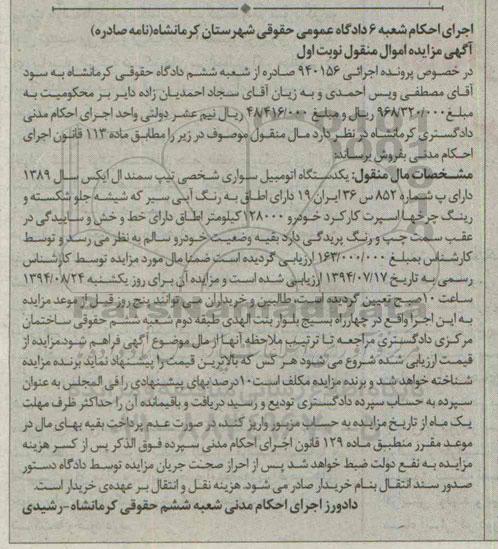 اجرای احکام شعبه ۶ دادگاه عمومی حقوقی شهرستان کرمانشاه(نامه صادره)
آگهی مزایده اموال منقول نوبت اول
در خصوص پرونده اجرائی ۹۴۰۱۵۶ صادره از شعبه ششم دادگاه حقوقی کرمانشاه به سود
آقای مصطفی ویس احمدی و به زیان آقای سجاد احمدیان زاده دایر بر محکومیت به
مبلغ ۹۶۸/۳۲۰/۰۰۰ ریال و مبلغ ۴۸/۴۱۶/۰۰۰ ریال نیم عشر دولتی واحد اجرای احکام مدنی
دادگستری کرمانشاه در نظر دارد مال منقول موصوف در زیر را مطابق ماده ۱۱۳ قانون اجرای
احکام مدنی بفروش برساند:
مشخصات مال منقول: یکدستگاه اتومبیل سواری شخصی تیپ سمند ال ایکس سال ۱۳۸۹
دارای پ شماره ۸۵۲ س ۳۶ ایران ۱۹ دارای اطاق به رنگ آبی سیر که شیشه جلو شکسته و
رینگ چرخها اسپرت کارکرد خودرو ۱۲۸۰۰۰ کیلومتر اطاق دارای خط و خش و ساییدگی در
عقب سمت چپ و رنگ پریدگی دارد بقیه وضعیت خودرو سالم به نظر می رسد و توسط
کارشناس بمبلغ ۱۶۳/۰۰۰/۰۰۰ ارزیابی گردیده است ضمنا مال مورد مزایده توسط کارشناس
رسمی به تاریخ ۱۳۹۴/۰۷/۱۷ ارزیابی شده است و مزایده آن برای روز یکشنبه ۱۳۹۴/۰۸/۲۴
ساعت ۱۰ صبح تعیین گردیده است، طالبین و خریداران می توانند پنج روز قبل از موعد مزایده
به این اجرا واقع در چهارراه بسیج بلوار بنت الهدی طبقه دوم شعبه ششم حقوقی ساختمان
مرکزی دادگستری مراجعه تا ترتیب ملاحظه آنها از مال موضوع آگهی فراهم شود.مزایده از
قیمت ارزیابی شده شروع می شود هر کس که بالاترین قیمت را پیشنهاد نماید برنده مزایده
شناخته خواهد شد و برنده مزایده مکلف است ۱۰درصد بهای پیشنهادی را فی المجلس به عنوان
سپرده به حساب سپرده دادگستری تودیع و رسید دریافت و باقیمانده آن را حداکثر ظرف مهلت
یک ماه از تاریخ مزایده به حساب مزبور واریز کنند، در صورت عدم پرداخت بقیه بهای مال در
موعد مقرر منطبق ماده ۱۲۹ قانون اجرای احکام مدنی سپرده فوق الذکر پس از کسر هزینه
مزایده به نفع دولت ضبط خواهد شد پس از احراز صحت جریان مزایده توسط دادگاه دستور
صدور سند انتقال بنام خریدار صادر می شود. هزینه نقل و انتقال بر عهده‌ی خریدار است.
دادورز اجرای احکام مدنی شعبه ششم حقوقی کرمانشاه - رشیدی